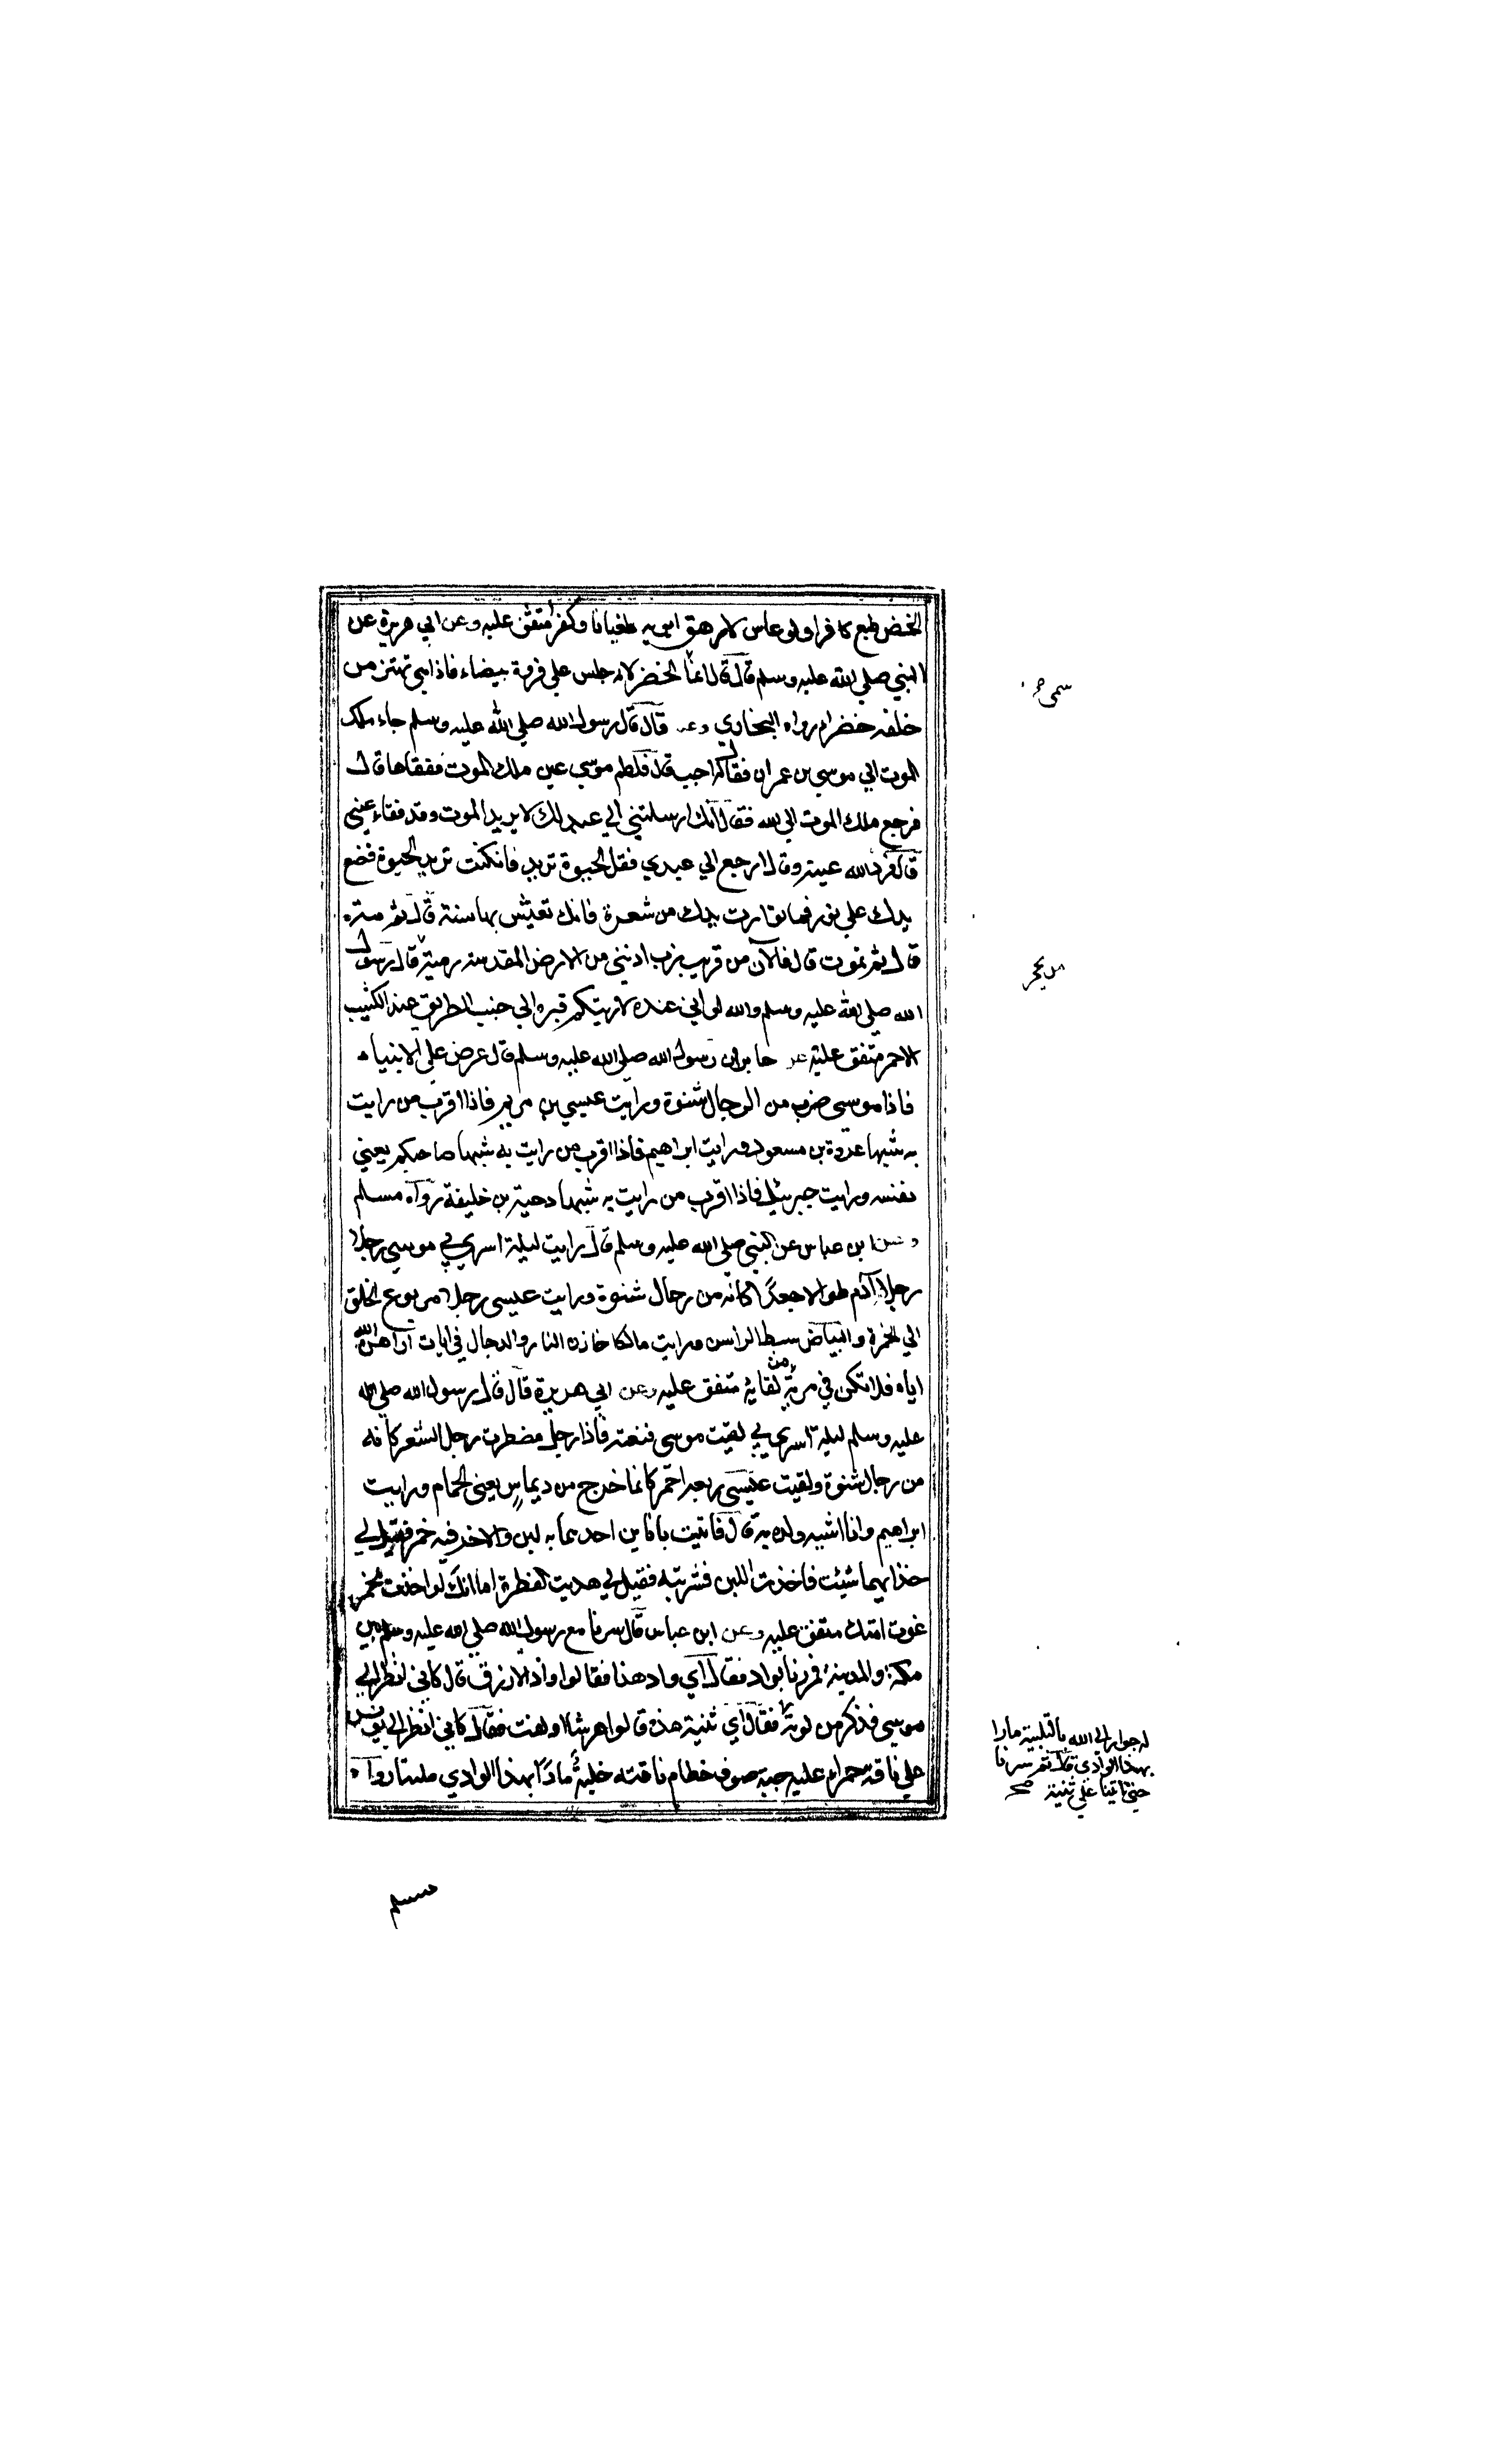 الخضر طبع كافرا ولو عاش لارهق ابويه طغيانا وكفرا متفق عليه وعن ابي هريرة عن
النبي صلي الله عليه وسلم قال انما الخضر لانه جلس علي فروة بيضاء فاذا هي تهتز من
سمي
خلفه خضراء رواه البخاري وعنه قال قال رسول الله صلي الله عليه وسلم جاء ملك
الموت الي موسي بن عمران فقال له اجب قال فلطم موسي عين ملك الموت ففقاها قال
فرجع ملك الموت الي الله فقال انك ارسلتني الي عبد لك لا يريد الموت وقد فقاء عيني
قال فرد الله عينه وقال ارجع الي عبدي فقل الحيوة تريد فان كنت تريد الحيوة فضع
يدك علي متن ثور فما توارت يدك من شعرة فانك تعيش بها سنة قال ثم مه
قال ثم تموت قال فالآن من قريب رب ادنني من الارض المقدسة رمية قال رسول
بحجر
الله صلي الله عليه وسلم والله لو اني عنده لاريتكم قبره الي جنب الطريق عند الكثيب
الاحمر متفق عليه عن جابر ان رسول الله صلي الله عليه وسلم قال عرض علي الانبياء
فاذا موسي ضرب من الرجال شنوة ورايت عيسي بن مريم فاذا اقرب من رايت
به شبها عروة بن مسعود ورايت ابراهيم فاذا اقرب من رايت به شبها صاحبكم يعني
نفسه ورايت جبرئيل فاذا اقرب من رايت به شبها دحية بن خليفة رواه مسلم
وعن ابن عباس عن النبي صلي الله عليه وسلم قال رايت ليلة اسري بي موسي رجلا
رجلا آدم طوالا جعدا كانه من رجال شنوة ورايت عيسي رجلا مربوع الخلق
الي الحمرة والبياض سبط الراس ورايت مالكا خازن النار والدجال في ايات اراهن الله
اياه فلا تكن في مرية من لقائه متفق عليه وعن ابي هريرة قال قال رسول الله صلي الله
عليه وسلم ليلة اسري بي لقيت موسي فنعته فاذا رجل مضطرب رجل الشعر كانه
من رجال شنوة ولقيت عيسي ربعة احمر كانما خرج من ديماس يعني الحمام ورايت
ابراهيم وانا اشبه ولده به قال فاتيت باناين احدهما به لبن والاخر فيه خمر فقيل لي
خذ ايهما شيئت فاخذت اللبن فشربته فقيل لي هديت الفطرة اما انك لو اخذت الخمر
غوت امتك متفق عليه وعن ابن عباس قال سرنا مع رسول الله صلي الله عليه وسلم بين
مكة والمدينة فمررنا بواد فقال اي واد هذا فقالوا وادي الازرق قال كاني انظر الي
موسي فذكر من لونه فقال اي ثنية هذه قالوا هرشا او لفت فقال كاني انظر الي يونس
له جوار الي الله بالتلبية مارا
بهذا الوادي قال ثم سرنا
حتي اتينا علي ثنية صح
علي ناقة حمراء عليه جبة صوف خطام ناقته خلبة مارا بهذا الوادي ملبيا رواه
مسلم